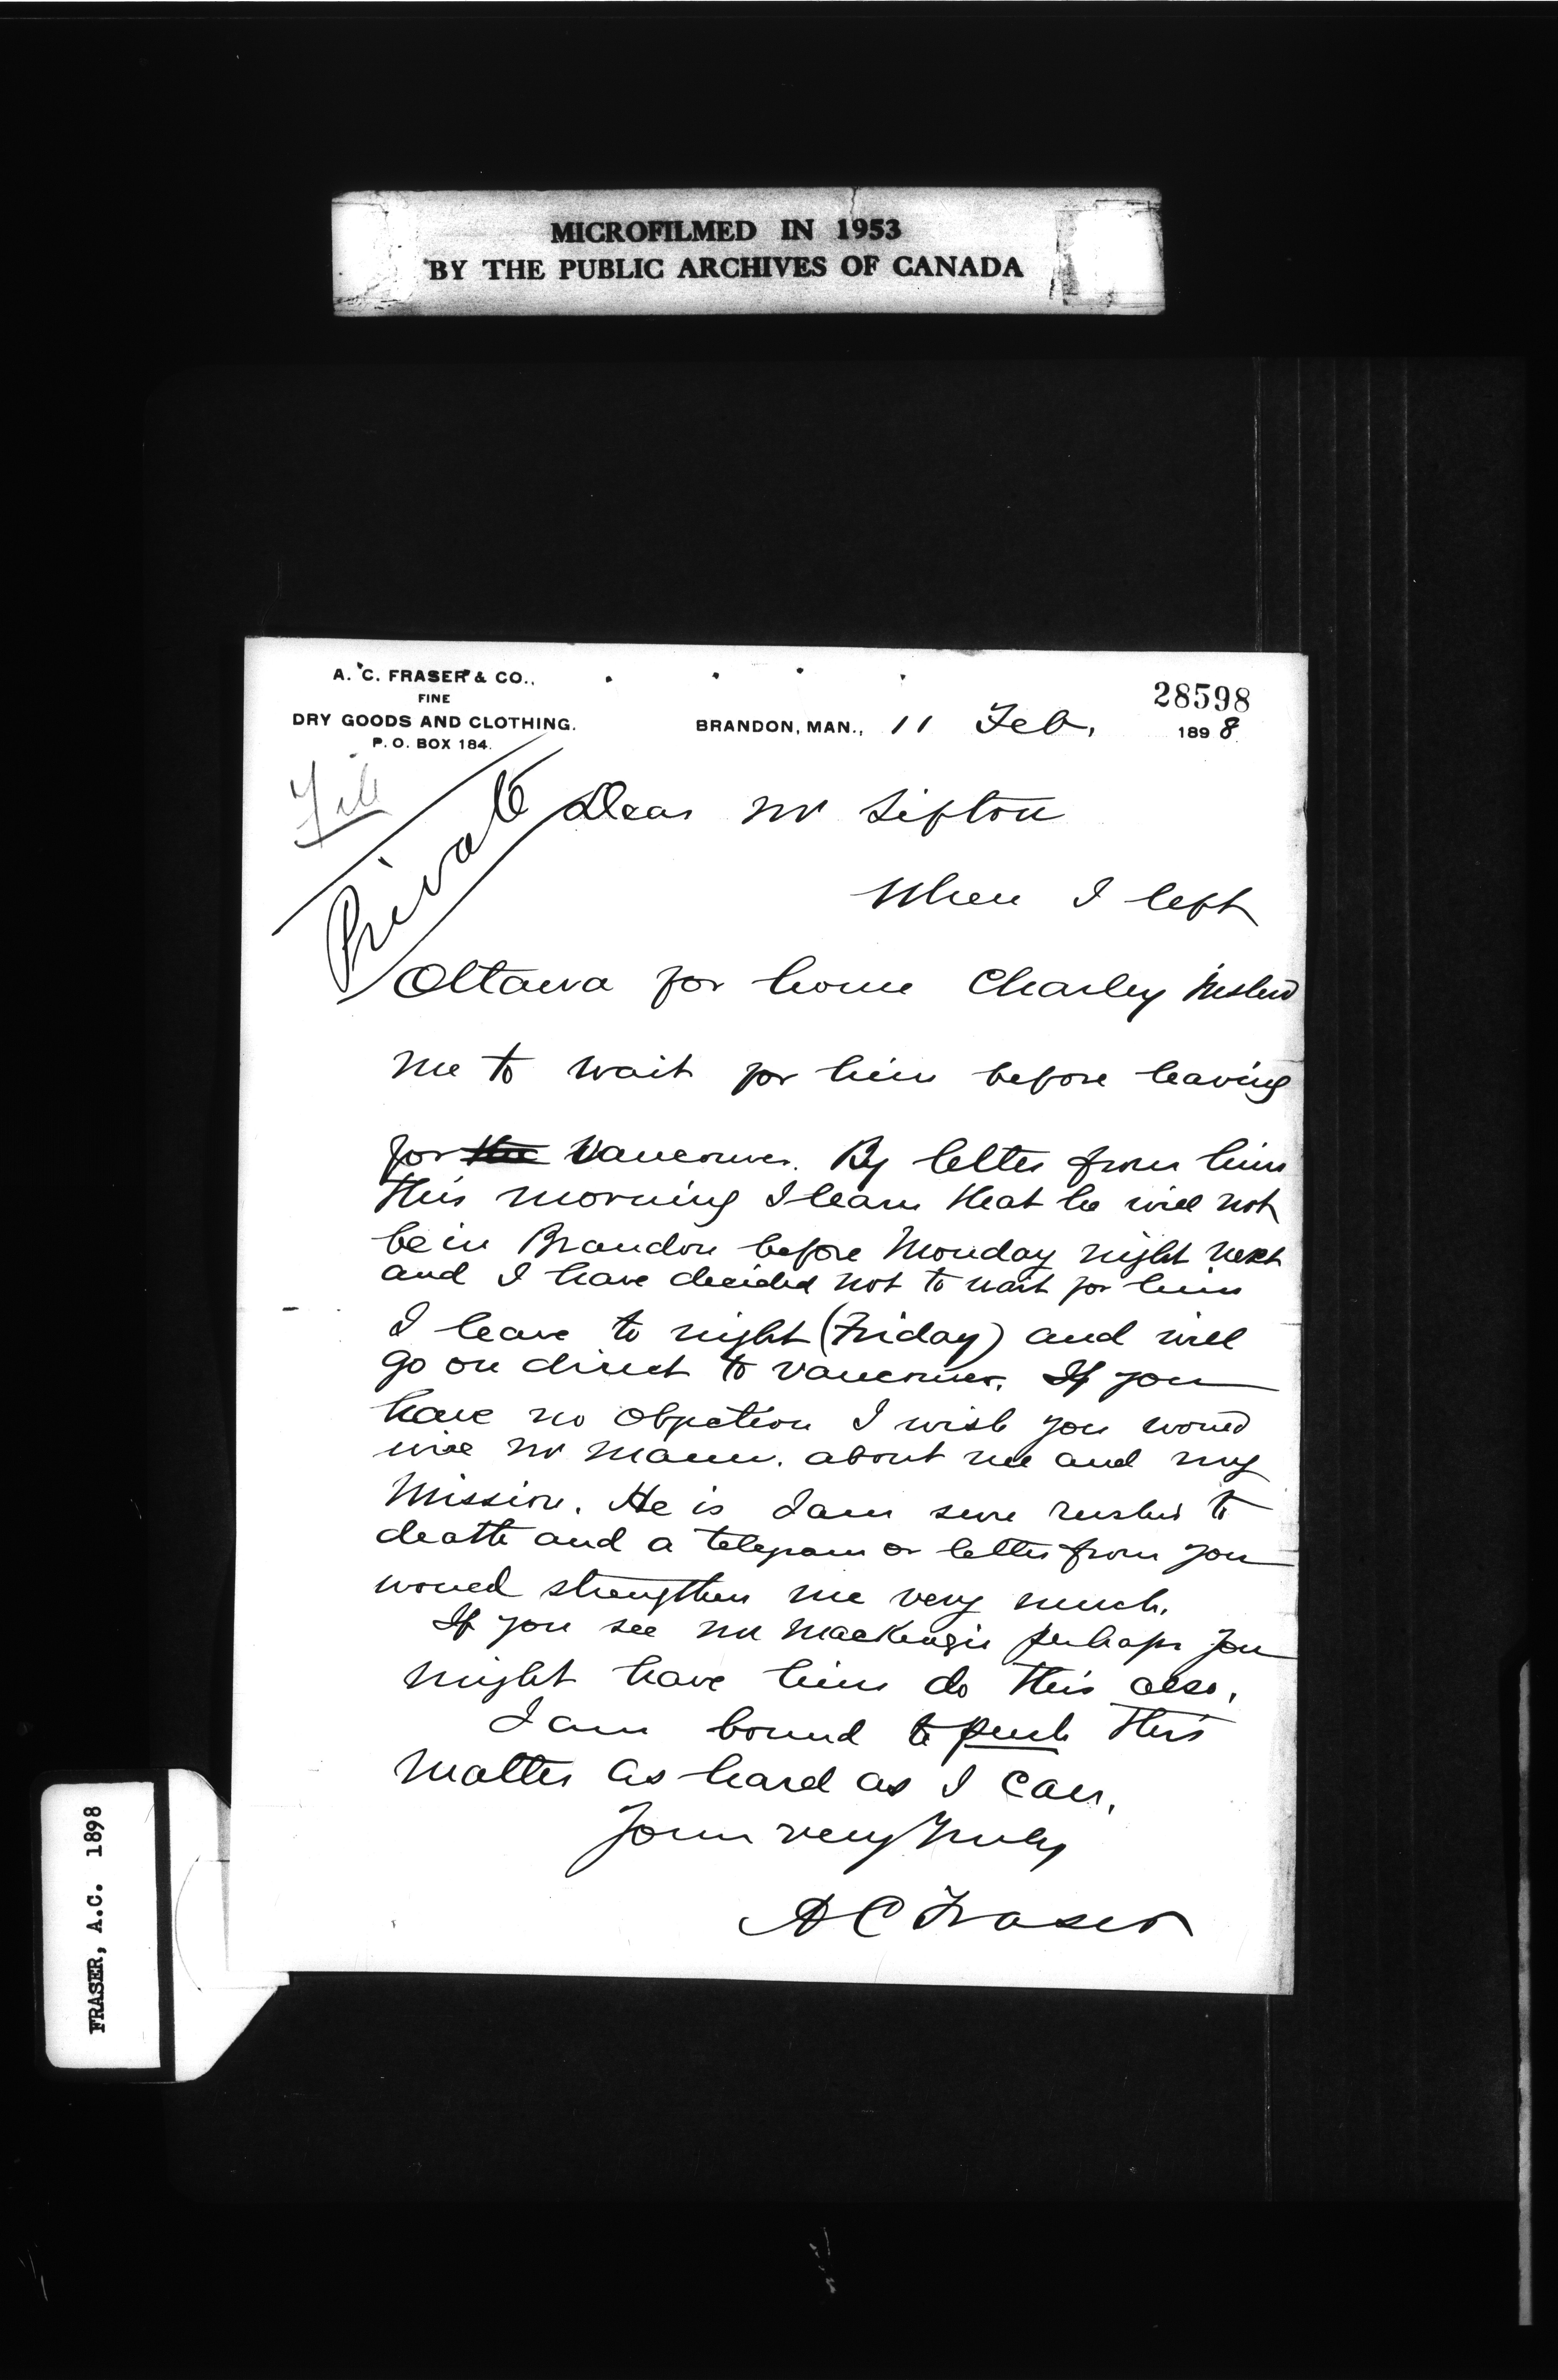 MICROFILMED IN 1953
BY THE PUBLIC ARCHIVES OF CANADA
A. C. FRASER & CO.,
FINE
DRY GOODS AND CLOTHING.
P. O. BOX 184.
28598
BRANDON, MAN., 11 Feb, 1898
File
Private
Dear Mr Sifton
When I left
Ottawa for home Charley wished
me to wait for him before leaving
for the Vancouver. By letter from him
this morning I learn that he will not
be in Brandon before Monday night next
and I have decided not to wait for him
I leave to night (Friday) and will
go on direct to Vancouver. If you
have no objection I wish you would
wire Mr Mann. about me and my
mission. He is I am sure rushed to
death and a telegram or letter from you
would strengthen me very much.
If you see Mr MacKenzie perhaps you
might have him do this also.
I am bound to push this
matter as hard as I can.
Yours very truly
A C Fraser
FRASER, A.C. 1898